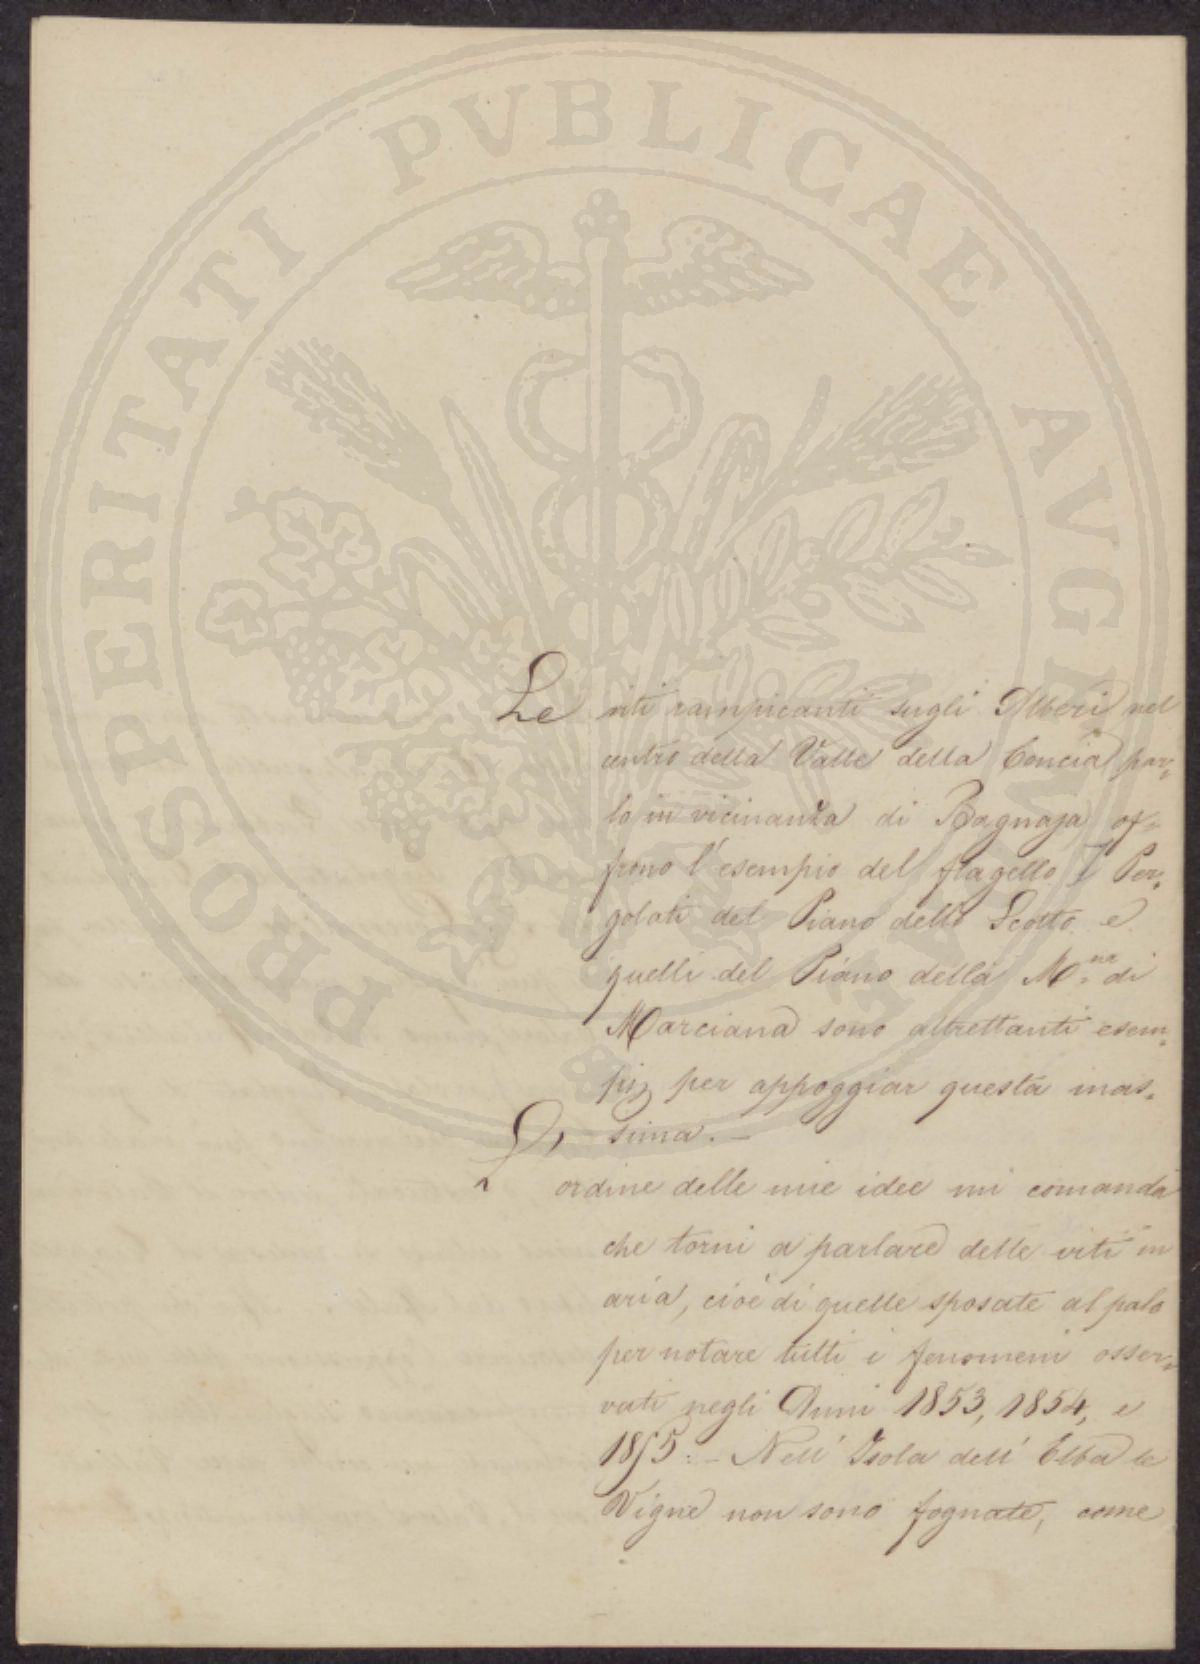 PROSPERITATI PVBLICAE AVGENDAE
Le viti rampicanti sugli Alberi nel
centro della Valle della Concia par-
lo in vicinanza di Bagnaja of-
frono l'esempio del flagello I Per-
golati del Piano dello Scotto e
quelli del Piano della M.na di
Marciana sono altrettanti esem-
pij per appoggiar questa mas-
sima. -
L'ordine delle mie idee mi comanda
che torni a parlare delle viti in
aria, cioè di quelle sposate al palo
per notare tutti i fenomeni osser-
vati negli Anni 1853, 1854, e
1855: - Nell' Isola dell' Elba le
Vigne non sono fognate, come